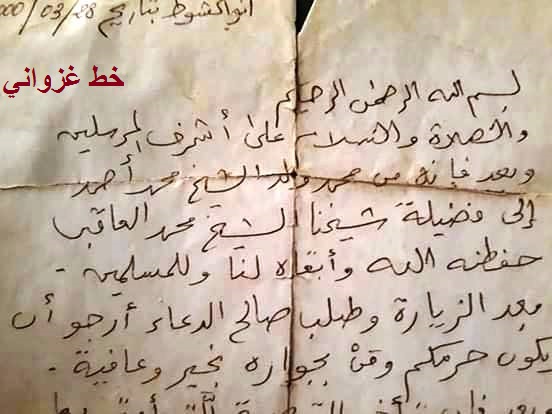 انواكشوط بتاريخ 28/03/000
خط غزواني
بسم الله الرحمن الرحيم
والصلاة والسلام على أشرف المرسلين
وبعد فإنه من محمد ولد الشيخ محمد أحمد
إلى فضيلة شيخنا الشيخ محمد العاقب
حفظه الله وأبقاه لنا وللمسلمين -
فبعد الزيارة وطلب صالح الدعاء أرجو أن
يكون حرمكم ومَنْ بجواره بخير وعافية -